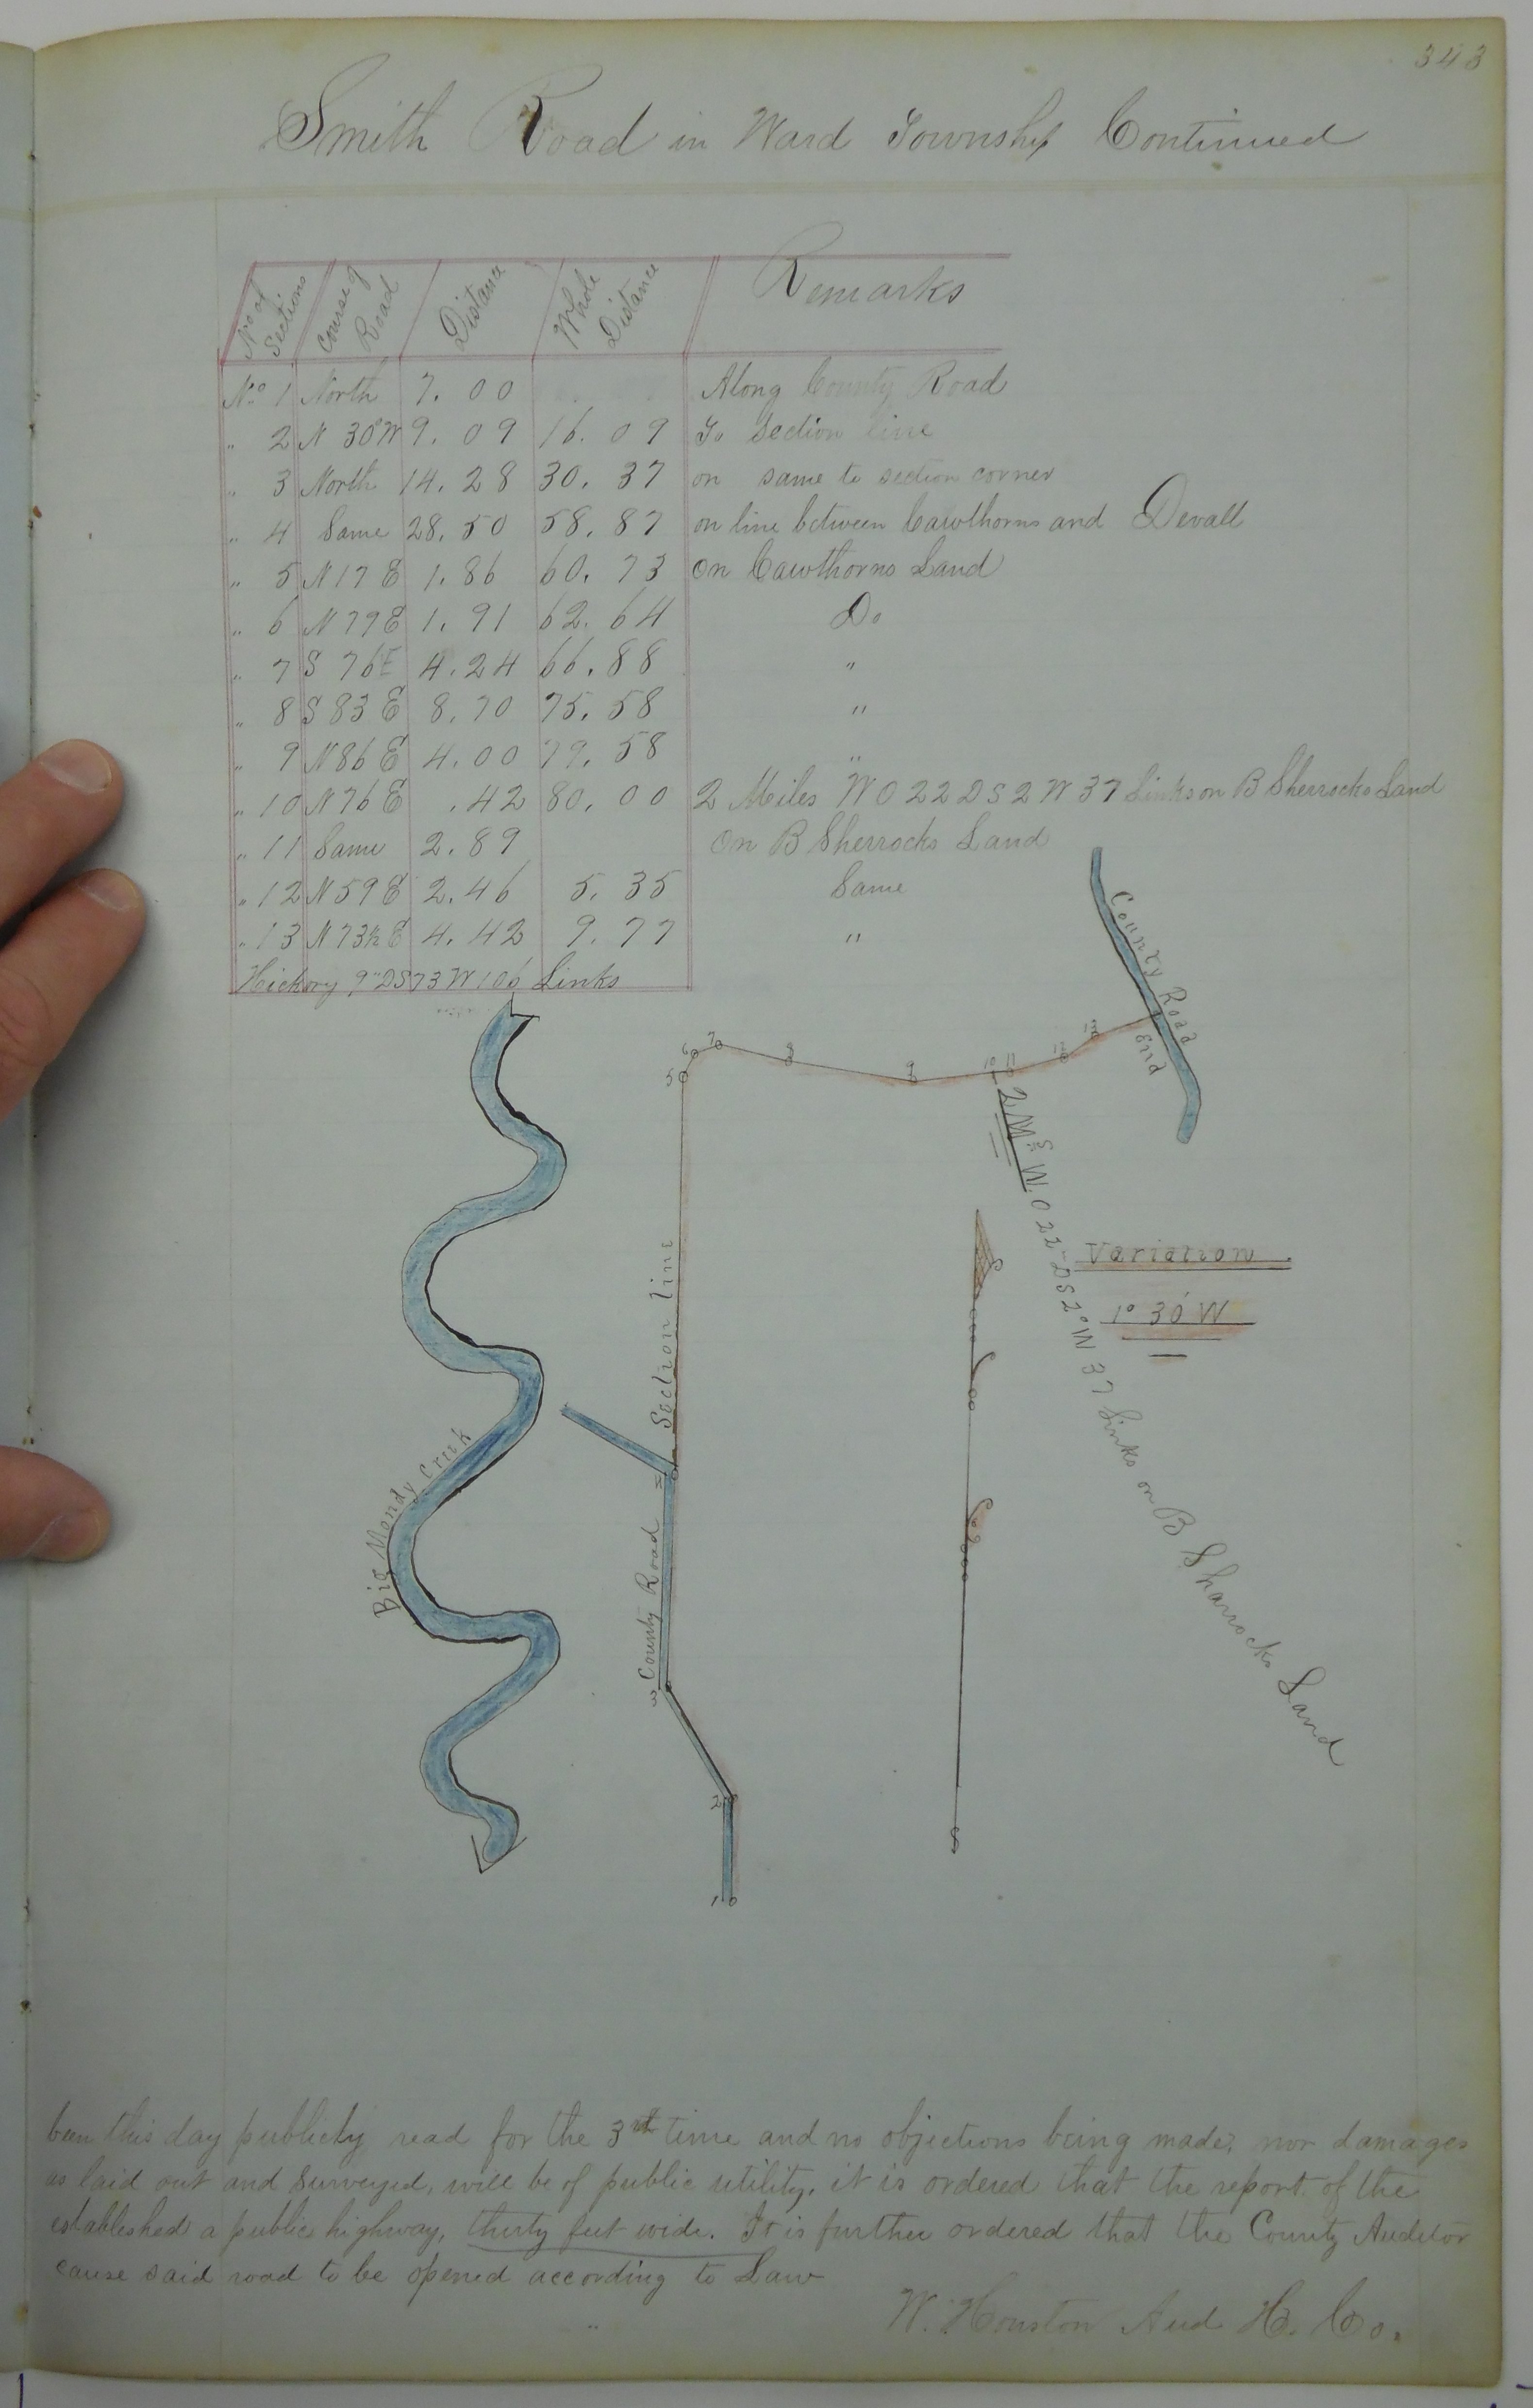 343
Smith Road in Ward Township Continued
No of Sections Course of Road Distance Whole Distance Remarks
No 1 North 7.00 Along County Road
" 2 N 30°W 9.09 16.09 To Section line
" 3 North 14.28 30.37 on same to section corner
" 4 Same 28.50 58.87 on line between Cawthorns and Devall
" 5 N 17 E 1.86 60.73 On Cawthorns Land
" 6 N 79 E 1.91 62.64 Do
" 7 S 76 E 4.24 66.88 "
" 8 S 83 E 8.70 75.58 "
" 9 N 86 E 4.00 79.58 "
" 10 N 76 E .42 80.00 2 Miles W O 22 D S 2 W 37 Links on B Sherrocks Land
" 11 Same 2.89 On B Sherrocks Land
" 12 N 59 E 2.46 5.35 Same
" 13 N 73½ E 4.42 9.77 "
Hickory 9" D S 73 W 106 Links
County Road
End
5 6 7 8 9 10 11 12 13
2 Ms W. O 22" D S 2° W 37 Links on B Sharrocks Land
Variation
1° 30' W
Section line
Big Mondy Creek
4
County Road
3
2
1
been this day publicly read for the 3rd time and no objections being made, nor damages
as laid out and Surveyed, will be of public utility, it is ordered that the report of the
established a public highway, thirty feet wide. It is further ordered that the County Auditor
cause said road to be opened according to Law
W. Houston Aud H. Co.